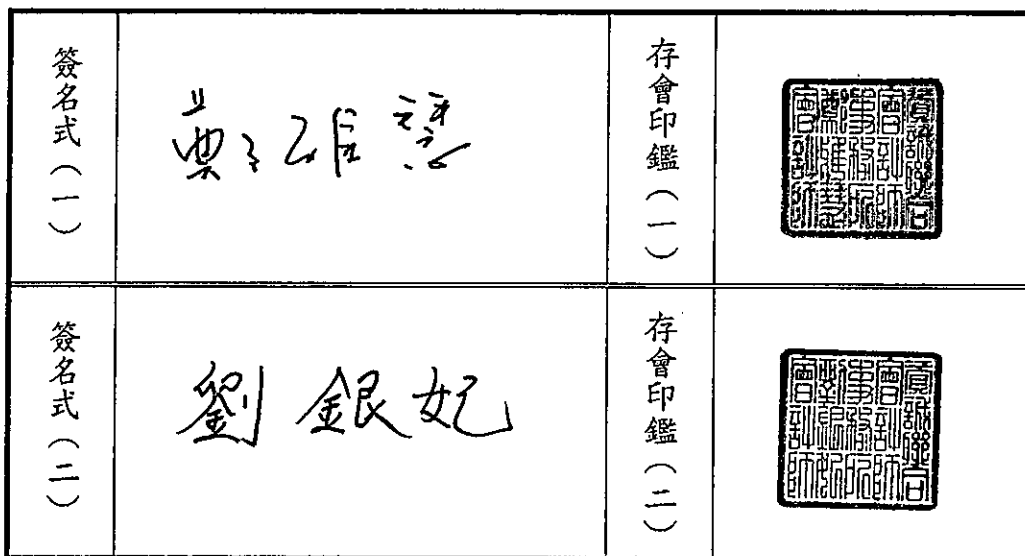 簽名式(一)
鄭雅慧
存會印鑑(一)
資誠聯合
會計師
事務所
鄭雅慧
會計師
簽名式(二)
劉銀妃
存會印鑑(二)
資誠聯合
會計師
事務所
劉銀妃
會計師